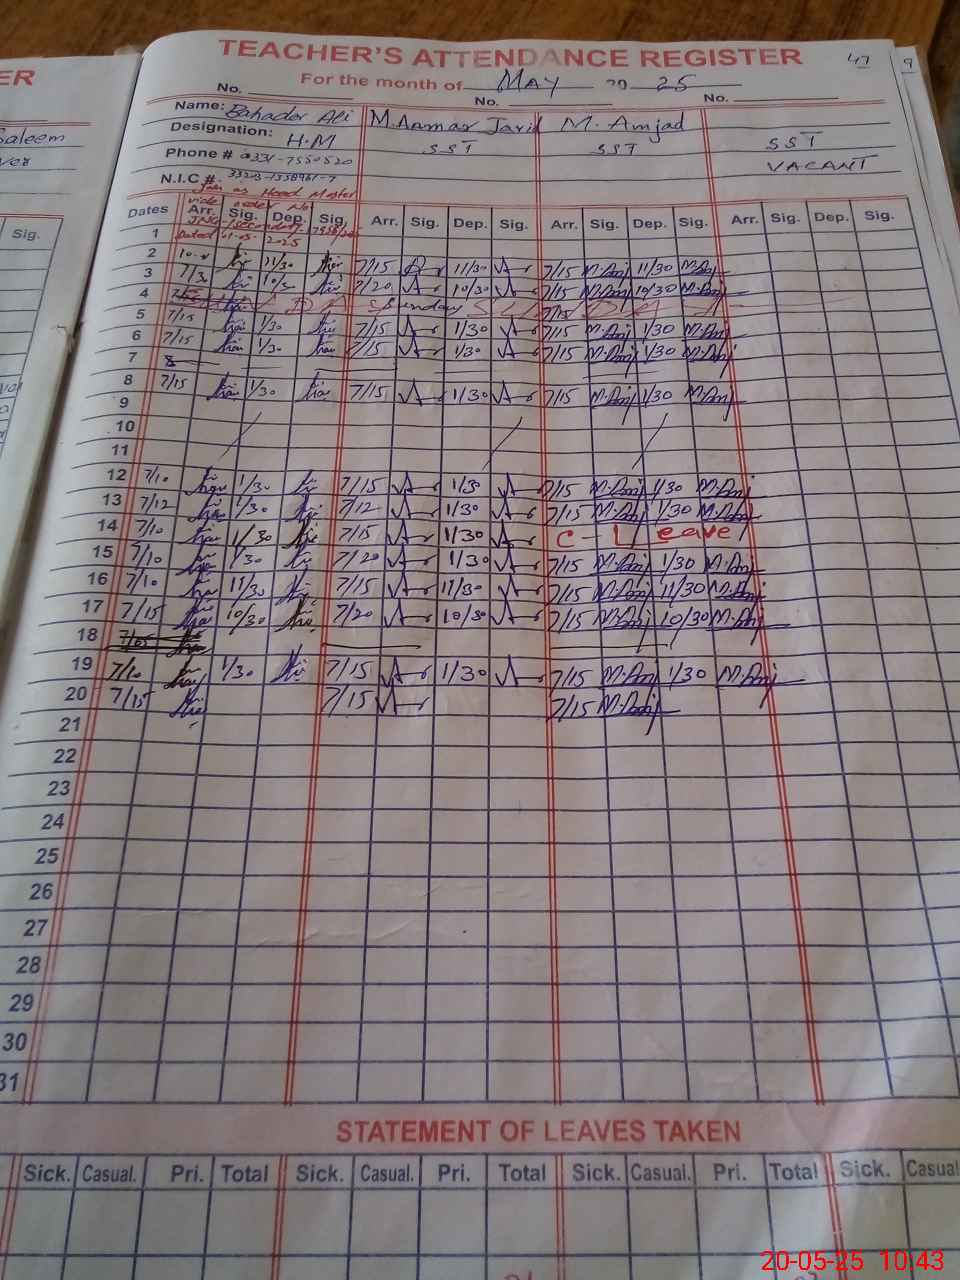 ER
TEACHER'S ATTENDANCE REGISTER
47
9
For the month of May 20 25
No. No. No.
Saleem
Name: Bahader Ali M. Aamar Javid M. Amjad
Designation: H.M SST SST SST
Phone # 0331-7550520 VACANT
N.I.C #.
Join as Head Master
vide order No
Dated 01-05-2025
Sig.
Dates Arr. Sig. Dep. Sig. Arr. Sig. Dep. Sig. Arr. Sig. Dep. Sig. Arr. Sig. Dep. Sig.
1
2 11/30 7/15 11/30 7/15 M.Amj 11/30 M.Amj
3 7/30 10/30 7/20 10/30 7/15 M.Amj 10/30 M.Amj
4 Sunday SUNDAY
5 7/15 1/30 7/15 1/30 7/15 M.Amj 1/30 M.Amj
6 7/15 1/30 7/15 1/30 7/15 M.Amj 1/30 M.Amj
7
8 7/15 1/30 7/15 1/30 7/15 M.Amj 1/30 M.Amj
9
10
11
12 7/10 1/30 7/15 1/30 7/15 M.Amj 1/30 M.Amj
13 7/12 1/30 7/12 1/30 7/15 M.Amj 1/30 M.Amj
14 7/10 1/30 7/15 1/30 C - Leave
15 7/10 1/30 7/20 1/30 7/15 M.Amj 1/30 M.Amj
16 7/10 11/30 7/15 11/30 7/15 M.Amj 11/30 M.Amj
17 7/15 10/30 7/20 10/30 7/15 M.Amj 10/30 M.Amj
18 7/05
19 7/10 1/30 7/15 1/30 7/15 M.Amj 1/30 M.Amj
20 7/15 7/15 7/15 M.Amj
21
22
23
24
25
26
27
28
29
30
31
STATEMENT OF LEAVES TAKEN
Sick. Casual. Pri. Total Sick. Casual. Pri. Total Sick. Casual. Pri. Total Sick. Casual
20-05-25 10:43